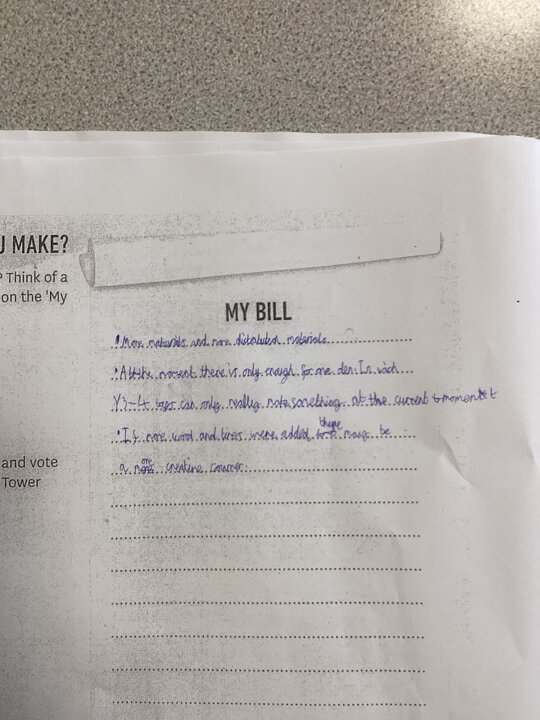 U MAKE?
? Think of a
on the 'My
and vote
Tower
MY BILL
• More materials and more distributed materials
• At the moment there is only enough for one den. In wich
Y3-4 boys can only really make something at the current moment
• If more wood and tires were added there may be
a more creative corner.